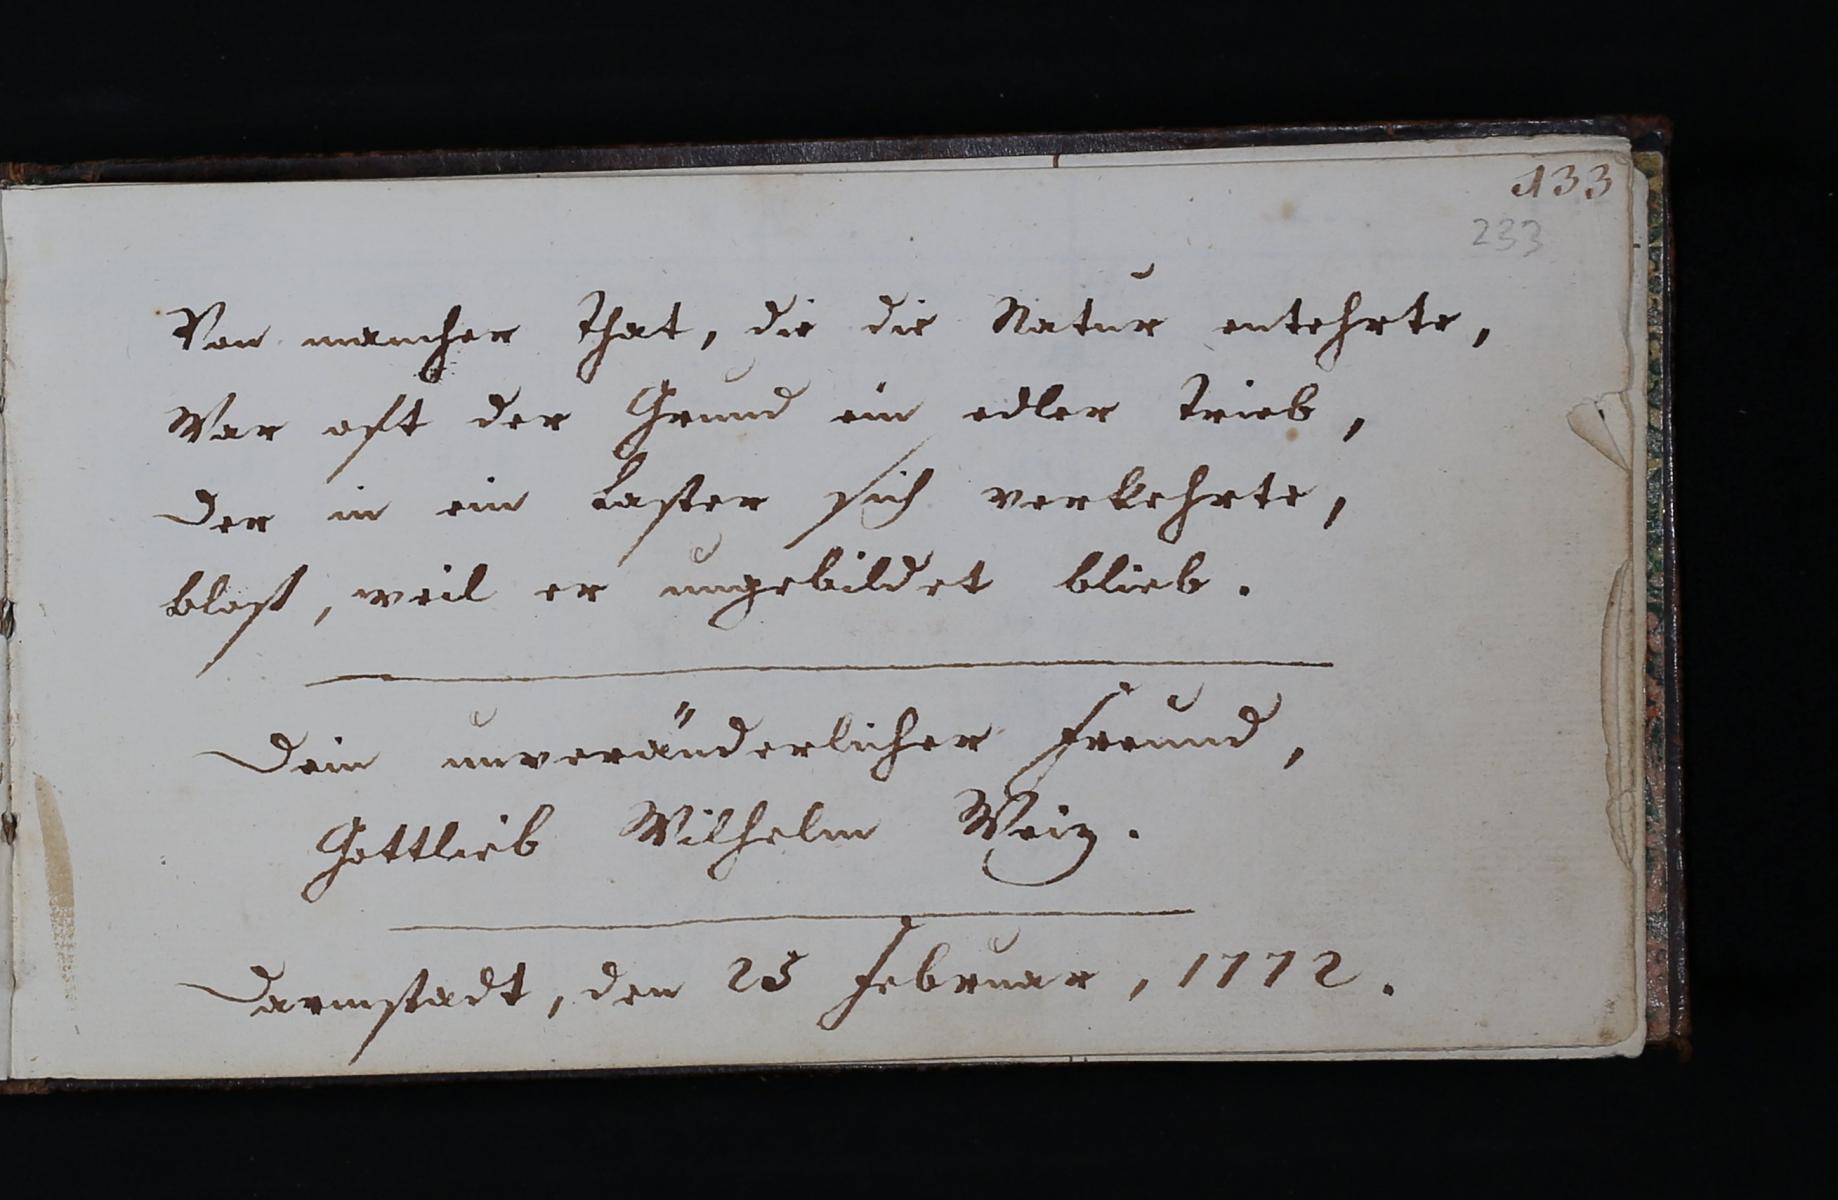 133
233
Von mancher That, die die Natur entehrte,
War oft der Grund ein edler Trieb,
Der in ein Laster sich verkehrte,
bloß, weil er ungebildet blieb.
Dein unveränderlicher Freund,
Gottlieb Wilhelm Weiz.
Darmstadt, den 25 Februar, 1772.